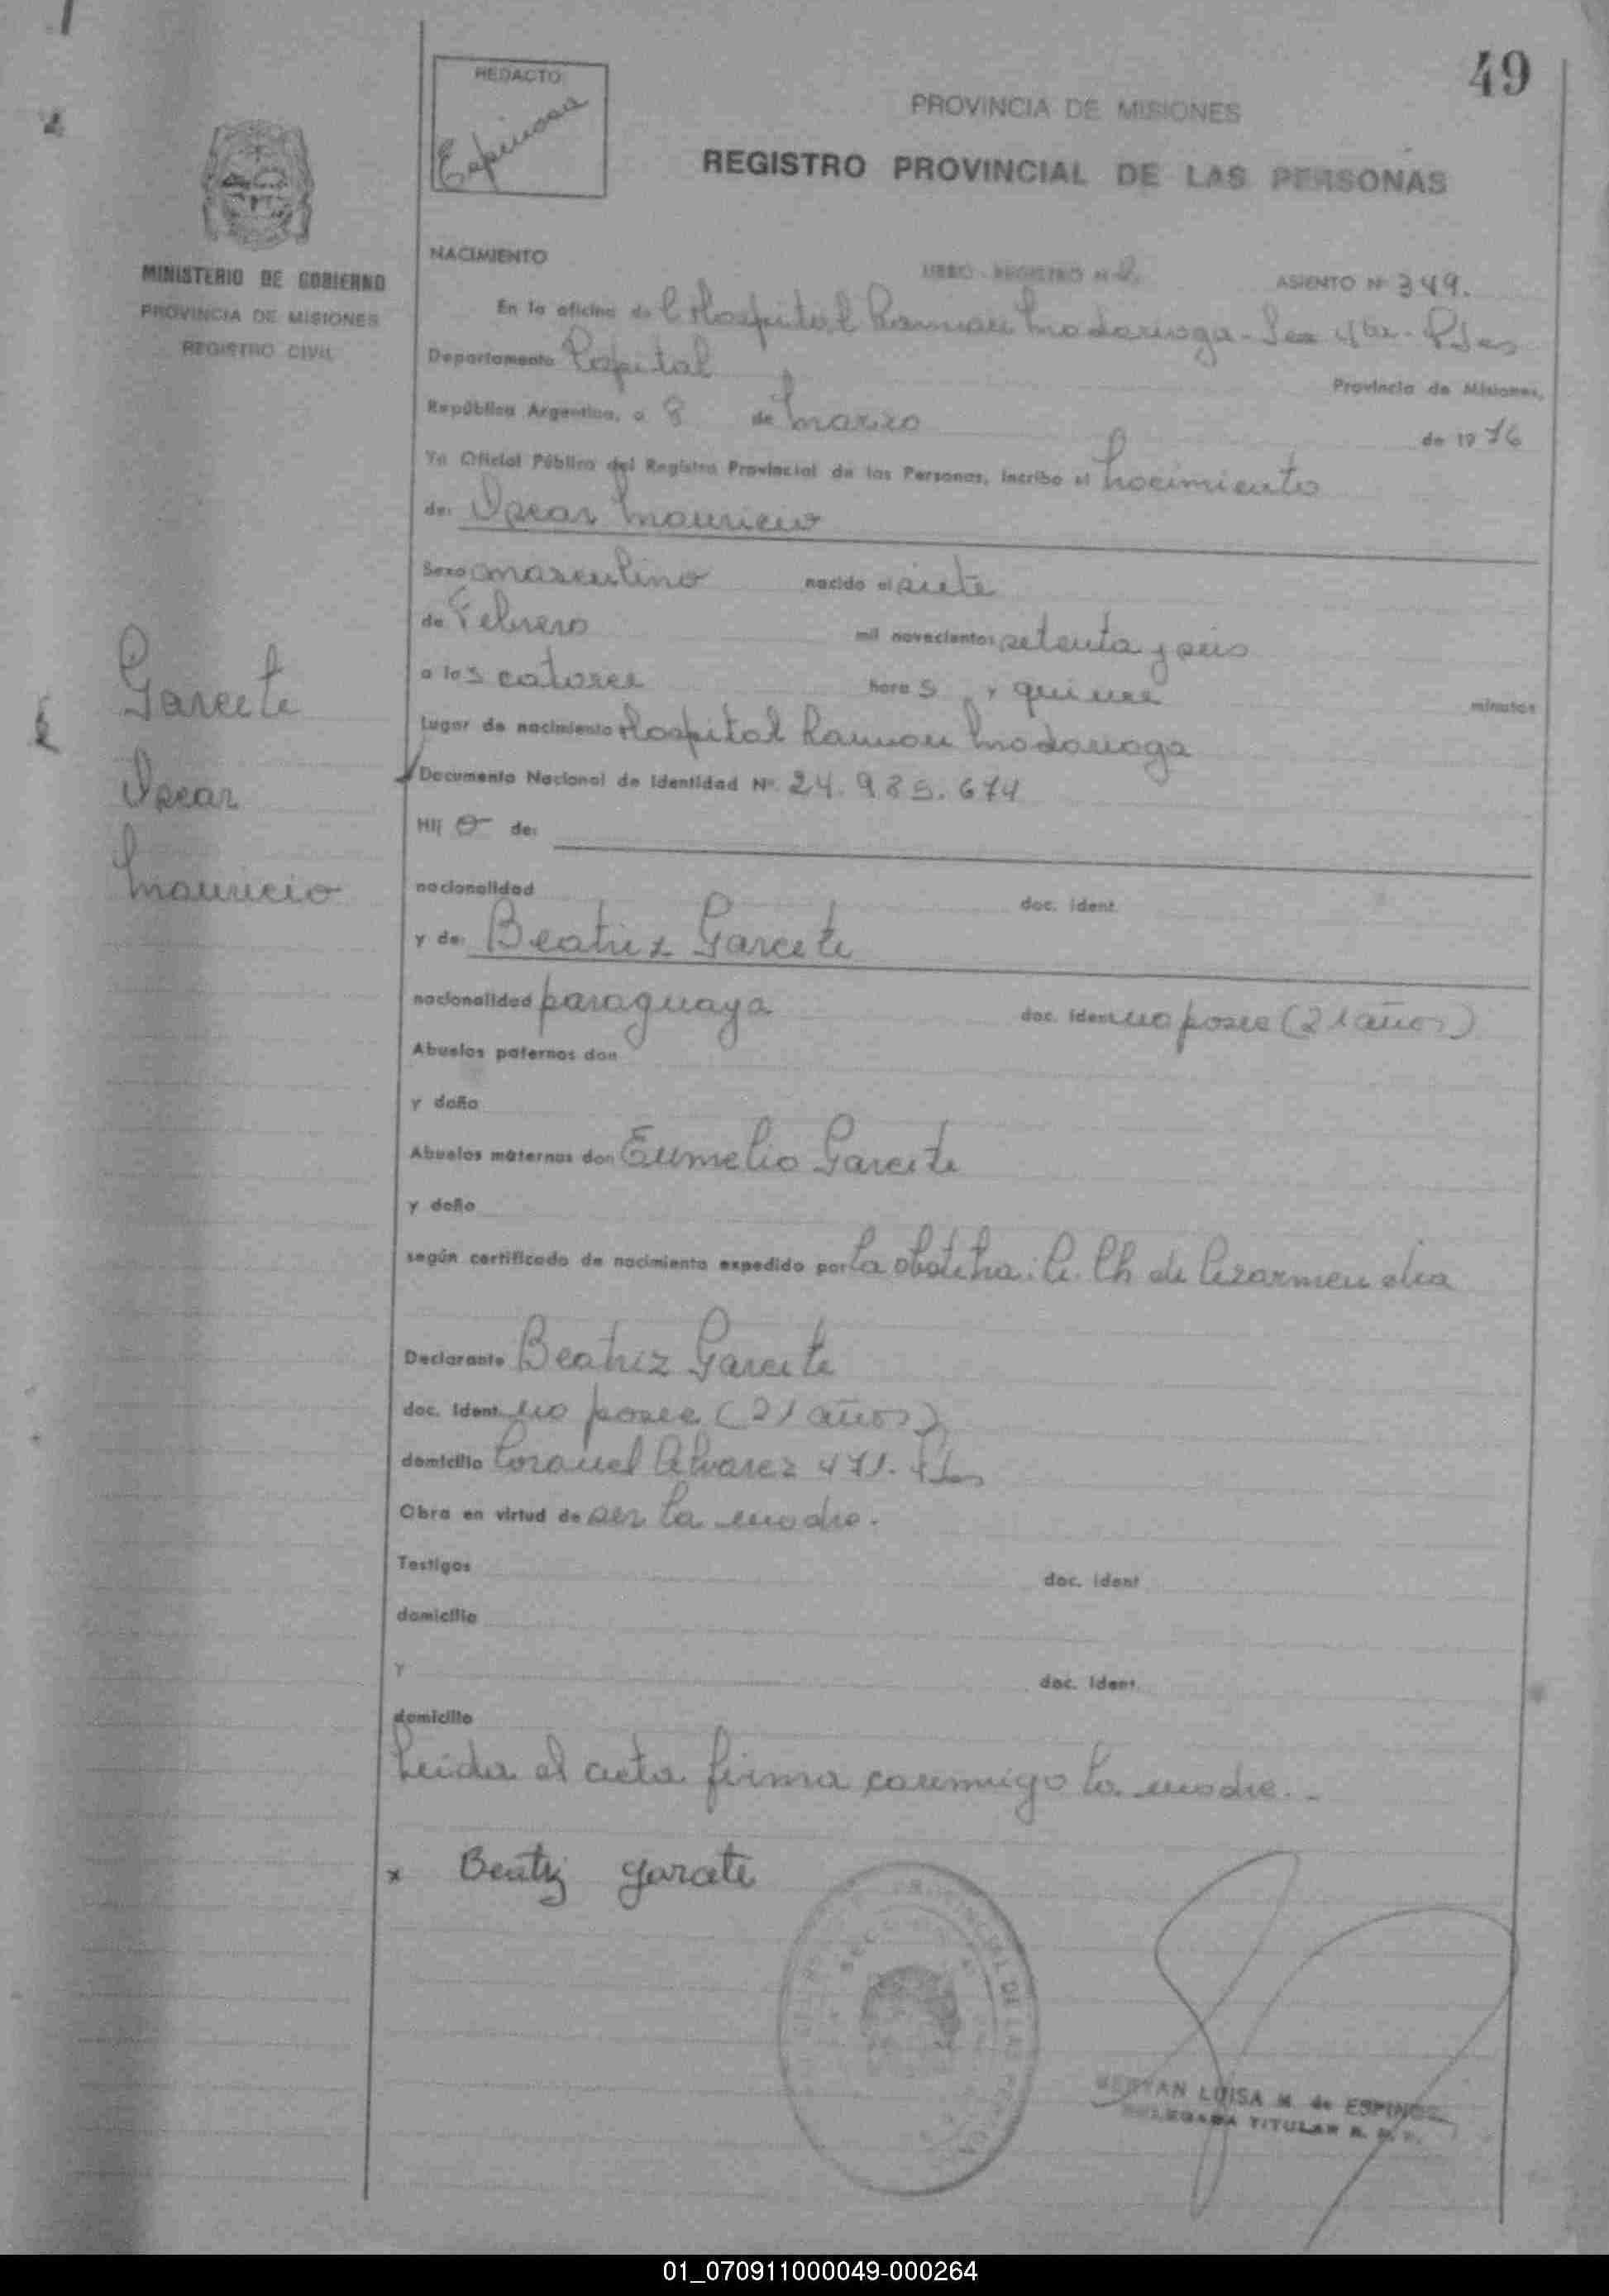 49
REDACTO
Espinosa
PROVINCIA DE MISIONES
REGISTRO PROVINCIAL DE LAS PERSONAS
MINISTERIO DE GOBIERNO
PROVINCIA DE MISIONES
REGISTRO CIVIL
NACIMIENTO LIBRO - REGISTRO Nº 2 ASIENTO Nº 349.
En la oficina del Hospital Ramon Madariaga - Sec 4ta - Pdas
Departamento Capital Provincia de Misiones,
República Argentina, a 8 de Marzo de 1976
Yo Oficial Público del Registro Provincial de las Personas, Incribo el Nacimiento
de: Oscar Mauricio
Sexo masculino nacido el siete
de Febrero mil novecientos setenta y seis
a las catorce horas y quince minutos
Lugar de nacimiento Hospital Ramon Madariaga
Documento Nacional de Identidad Nº 24.985.674
Hij o de:
nacionalidad doc. ident.
y de: Beatriz Garcete
nacionalidad paraguaya doc. ident. no posee (21 años)
Abuelos paternos don
y doña
Abuelos maternos don Eumelio Garcete
y doña
según certificado de nacimiento expedido por la obstetra: C. Ch de
Declarante Beatriz Garcete
doc. ident. no posee (21 años)
domicilio Coronel Alvarez 471. Pdas
Obra en virtud de ser la madre.
Testigos doc. ident
domicilio
Y doc. ident.
domicilio
Leida el acta firma conmigo la madre. -
x Beatriz garcete
Garcete
Oscar
Mauricio
PROVINCIAL DE LAS PERSONAS
LUISA M. de ESPINOSA
DELEGADA TITULAR R. P. P.
01_070911000049-000264